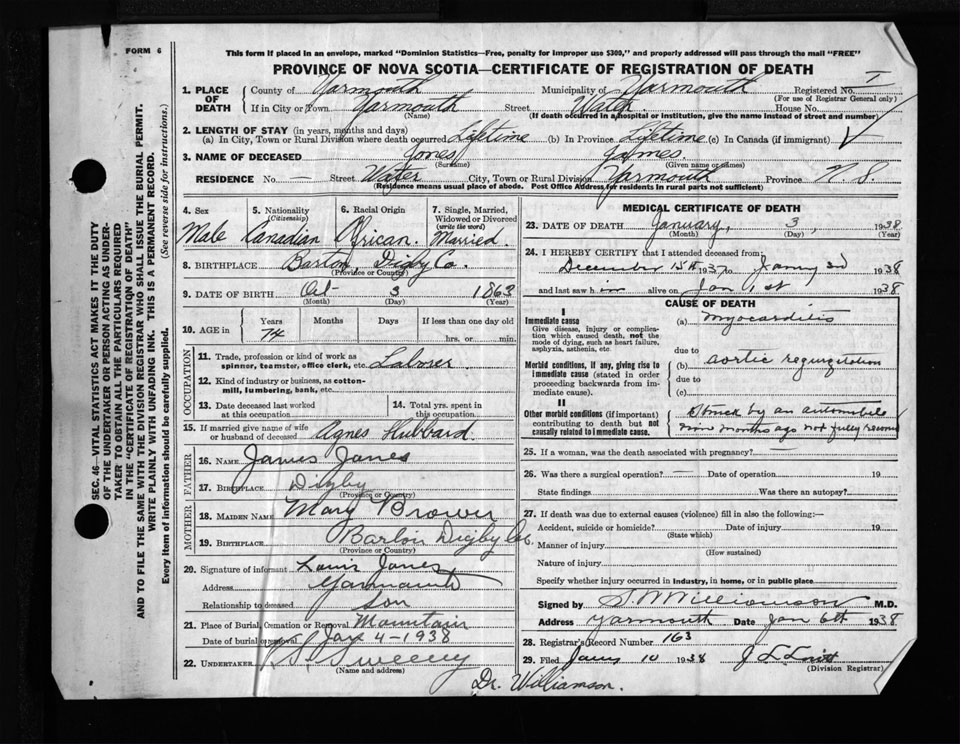 FORM 6
This form if placed in an envelope, marked "Dominion Statistics—Free, penalty for improper use $300," and properly addressed will pass through the mail "FREE"
PROVINCE OF NOVA SCOTIA—CERTIFICATE OF REGISTRATION OF DEATH
SEC. 46—VITAL STATISTICS ACT MAKES IT THE DUTY
OF THE UNDERTAKER OR PERSON ACTING AS UNDER-
TAKER TO OBTAIN ALL THE PARTICULARS REQUIRED
IN THE "CERTIFICATE OF REGISTRATION OF DEATH"
AND TO FILE THE SAME WITH THE DIVISION REGISTRAR WHO SHALL ISSUE THE BURIAL PERMIT.
WRITE PLAINLY WITH UNFADING INK. THIS IS A PERMANENT RECORD.
Every item of information should be carefully supplied. (See reverse side for instructions.)
1. PLACE OF DEATH County of Yarmouth Municipality of Yarmouth Registered No. I
(For use of Registrar General only)
If in City or Town Yarmouth Street Water House No.
(Name) (If death occurred in a hospital or institution, give the name instead of street and number)
2. LENGTH OF STAY (in years, months and days)
(a) In City, Town or Rural Division where death occurred Lifetime (b) In Province Lifetime (c) In Canada (if immigrant)
3. NAME OF DECEASED Jones James
(Surname) (Given name or names)
RESIDENCE No. — Street Water City, Town or Rural Division Yarmouth Province N. S.
(Residence means usual place of abode. Post Office Address for residents in rural parts not sufficient)
4. Sex 5. Nationality (Citizenship) 6. Racial Origin 7. Single, Married, Widowed or Divorced (write the word)
Male Canadian African. Married.
8. BIRTHPLACE Barton Digby Co.
(Province or County)
9. DATE OF BIRTH Oct 3 1863
(Month) (Day) (Year)
10. AGE in Years Months Days If less than one day old
74 hrs. or min.
OCCUPATION
11. Trade, profession or kind of work as spinner, teamster, office clerk, etc. Laborer.
12. Kind of industry or business, as cotton-mill, lumbering, bank, etc.
13. Date deceased last worked at this occupation 14. Total yrs. spent in this occupation.
15. If married give name of wife or husband of deceased Agnes Hubbard.
FATHER
16. NAME James Jones
17. BIRTHPLACE Digby
(Province or Country)
MOTHER
18. MAIDEN NAME Mary Brown
19. BIRTHPLACE Barton Digby Co.
(Province or Country)
20. Signature of informant Louis Jones
Address Yarmouth
Relationship to deceased Son
21. Place of Burial, Cremation or Removal Mountain
Date of burial or removal Jan 4-1938
22. UNDERTAKER Sweeny
(Name and address)
MEDICAL CERTIFICATE OF DEATH
23. DATE OF DEATH January, 3, 1938
(Month) (Day) (Year)
24. I HEREBY CERTIFY that I attended deceased from:
December 15th 1937 to Jany 3rd 1938
and last saw him alive on Jan 1st 1938
CAUSE OF DEATH
I
Immediate cause
Give disease, injury or complica-
tion which caused death, not the
mode of dying, such as heart failure,
asphyxia, asthenia, etc.
(a) Myocarditis
due to
Morbid conditions, if any, giving rise to
immediate cause (stated in order
proceeding backwards from im-
mediate cause).
(b) aortic regurgitation
due to
(c)
II
Other morbid conditions (if important)
contributing to death but not
causally related to immediate cause.
Struck by an automobile
nine months ago not fully
25. If a woman, was the death associated with pregnancy? —
26. Was there a surgical operation? — Date of operation 19
State findings Was there an autopsy?
27. If death was due to external causes (violence) fill in also the following:—
Accident, suicide or homicide? Date of injury 19
(State which)
Manner of injury
(How sustained)
Nature of injury
Specify whether injury occurred in industry, in home, or in public place
Signed by S. Williamson M.D.
Address Yarmouth Date Jan 6th 1938
28. Registrar's Record Number 163
29. Filed Jany 10 1938
(Division Registrar)
Dr. Williamson.